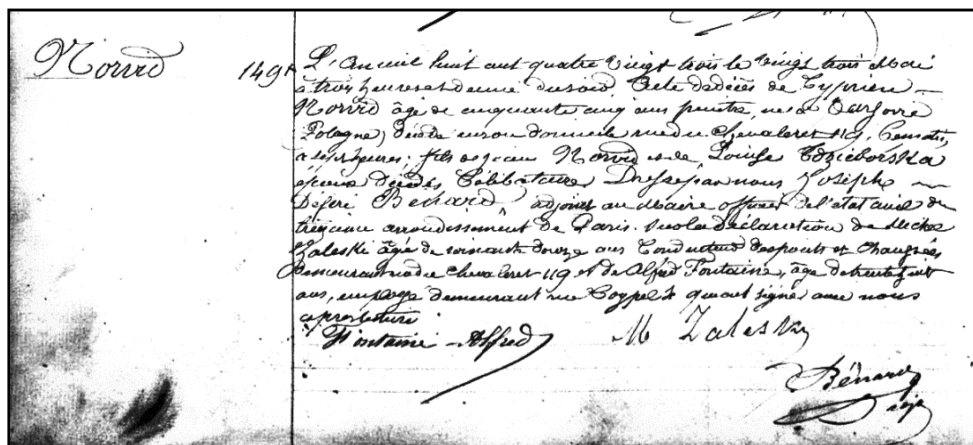 Norvid
1491
L'An mil huit cent quatre vingt trois le vingt trois Mai
à trois heures et demie du soir. Acte de décès de Cyprien
Norvid âgé de cinquante cinq ans peintre, né à Varsovie
Pologne) décédé en son domicile rue du Chevaleret 119. Ce matin
à sept heures; fils de Jean Norvid et de Louise Edzieborska
époux décédés Célibataire Dressé par nous Joseph
Désiré Bénard adjoint au Maire officier de l'état civil du
treizième arrondissement de Paris. sur la déclaration de Michel
Zaleski âgé de soixante douze ans Conducteur des ponts et chaussées
demeurant rue du Chevaleret 119 et de Alfred Fontaine, âgé de trente sept
ans, employé demeurant rue Coypel qui ont signé avec nous
après lecture
Fontaine Alfred M Zaleski
Bénard